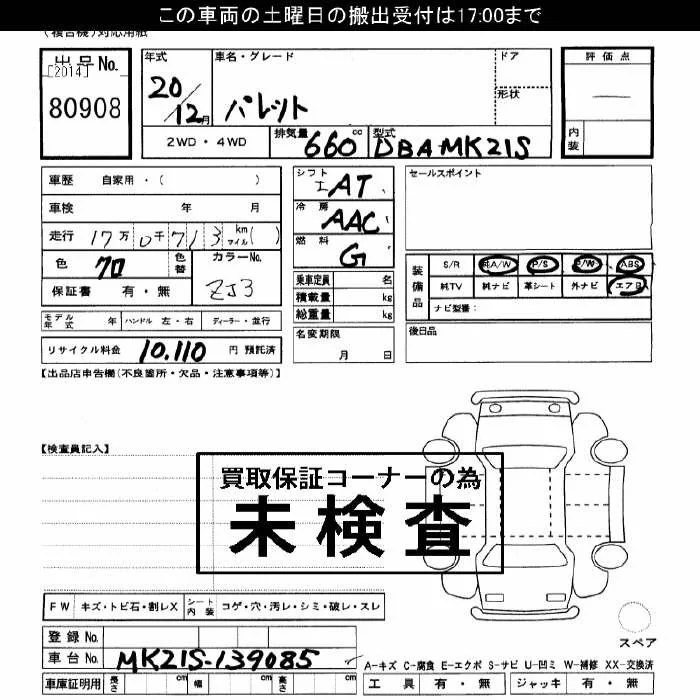 この車両の土曜日の搬出受付は17:00まで
(複合機)対応用紙
出品No.
[2014]
80908
年式
20/12月
車名・グレード
パレット
ドア
形状
評価点
内装
2WD・4WD
排気量 660 cc
型式 DBA-MK21S
車歴 自家用・( )
車検 年 月
走行 17万0千713 km マイル( )
色 クロ
色替
カラーNo. ZJ3
保証書 有・無
モデル年式 年 ハンドル 左・右 ディーラー・並行
リサイクル料金 10,110 円 預託済
シフト AT
冷房 AAC
燃料 G
乗車定員 名
積載量 kg
総重量 kg
名変期限
月 日
セールスポイント
装備品
S/R 純A/W P/S P/W ABS
純TV 純ナビ 革シート 外ナビ エアB
ナビ型番:
後日品
【出品店申告欄(不良箇所・欠品・注意事項等)】
【検査員記入】
買取保証コーナーの為
未検査
FW キズ・トビ石・割レX シート内装 コゲ・穴・汚レ・シミ・破レ・スレ
登録No.
車台No. MK21S-139085
車庫証明用 長さ cm 幅 cm 高さ cm
スペア
A-キズ C-腐食 E-エクボ S-サビ U-凹ミ W-補修 XX-交換済
工具 有・無 ジャッキ 有・無